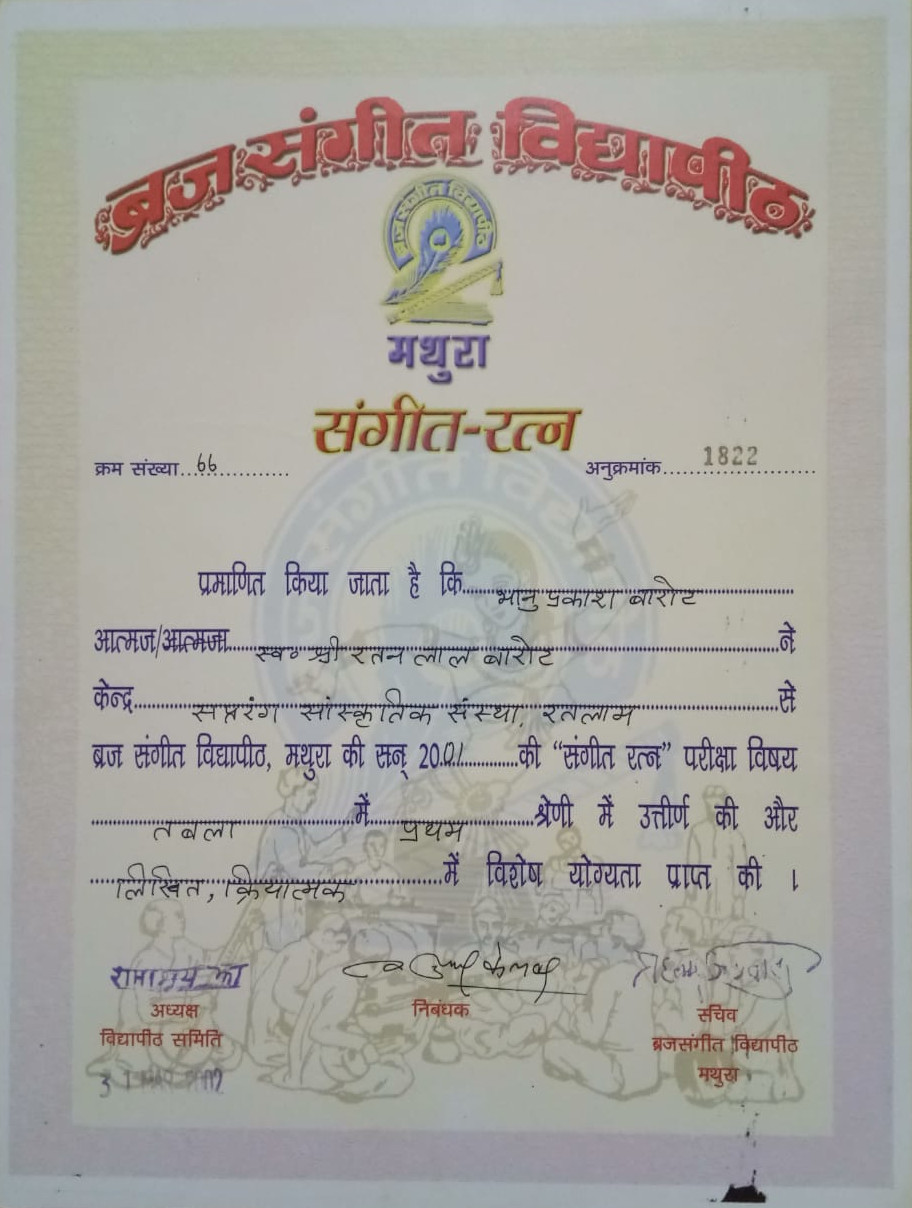 ब्रज संगीत विद्यापीठ
ब्रज संगीत विद्यापीठ
मथुरा
संगीत-रत्न
क्रम संख्या...66............. अनुक्रमांक.......1822.............
प्रमाणित किया जाता है कि भानु प्रकाश बारोट
आत्मज/आत्मजा स्व० श्री रतन लाल बारोट ने
केन्द्र सप्तरंग सांस्कृतिक संस्था, रतलाम से
ब्रज संगीत विद्यापीठ, मथुरा की सन् 2001 की “संगीत रत्न” परीक्षा विषय
तबला में प्रथम श्रेणी में उत्तीर्ण की और
लिखित, क्रियात्मक में विशेष योग्यता प्राप्त की ।
अध्यक्ष निबंधक सचिव
विद्यापीठ समिति ब्रजसंगीत विद्यापीठ
मथुरा